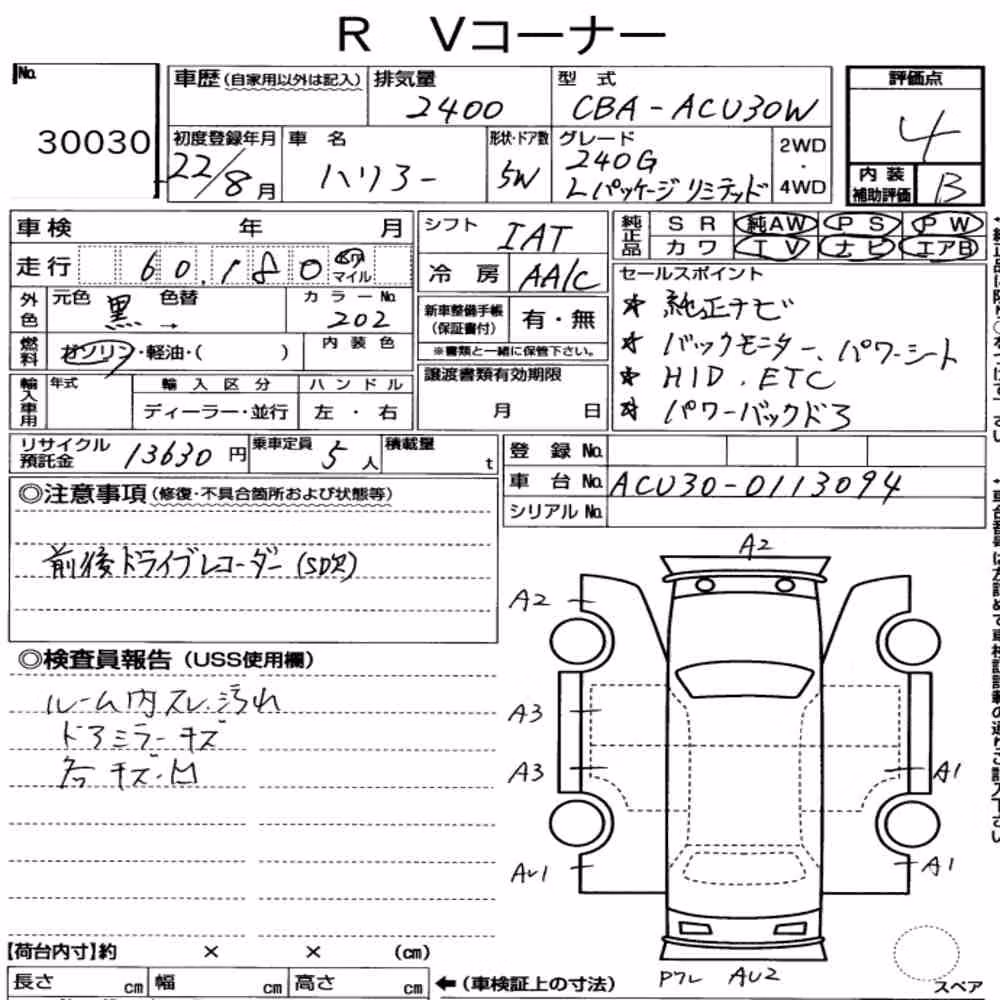 R Vコーナー
No.
30030
車歴(自家用以外は記入)
排気量
2400
型式
CBA-ACU30W
評価点
4
初度登録年月
22/8月
車名
ハリアー
形状・ドア数
5W
グレード
240G
Lパッケージ リミテッド
2WD
・
4WD
内装
補助評価
B
車検 年 月
走行 60,180 キロ マイル
シフト
IAT
冷房
AA/C
純正品
SR 純AW PS PW
カワ TV ナビ エアB
セールスポイント
★ 純正ナビ
★ バックモニター、パワーシート
★ HID.ETC
★ パワーバックドア
外色
元色 黒→ 色替
カラーNo.
202
燃料
ガソリン・軽油・( )
内装色
新車整備手帳
(保証書付)
有・無
※書類と一緒に保管下さい。
輸入車用
年式
輸入区分
ディーラー・並行
ハンドル
左・右
譲渡書類有効期限
月 日
リサイクル
預託金
13630円
乗車定員
5人
積載量
t
登録No.
車台No. ACU30-0113094
シリアルNo.
◎注意事項(修復・不具合箇所および状態等)
前後ドライブレコーダー(SD欠)
◎検査員報告(USS使用欄)
ルーム内スレ汚れ
ドアミラーキズ
各キズ・凹
A2
A2
A3
A3
A1
A1
AU2
Pフレ
スペア
【荷台内寸】約 × × (cm)
長さ cm 幅 cm 高さ cm
←(車検証上の寸法)